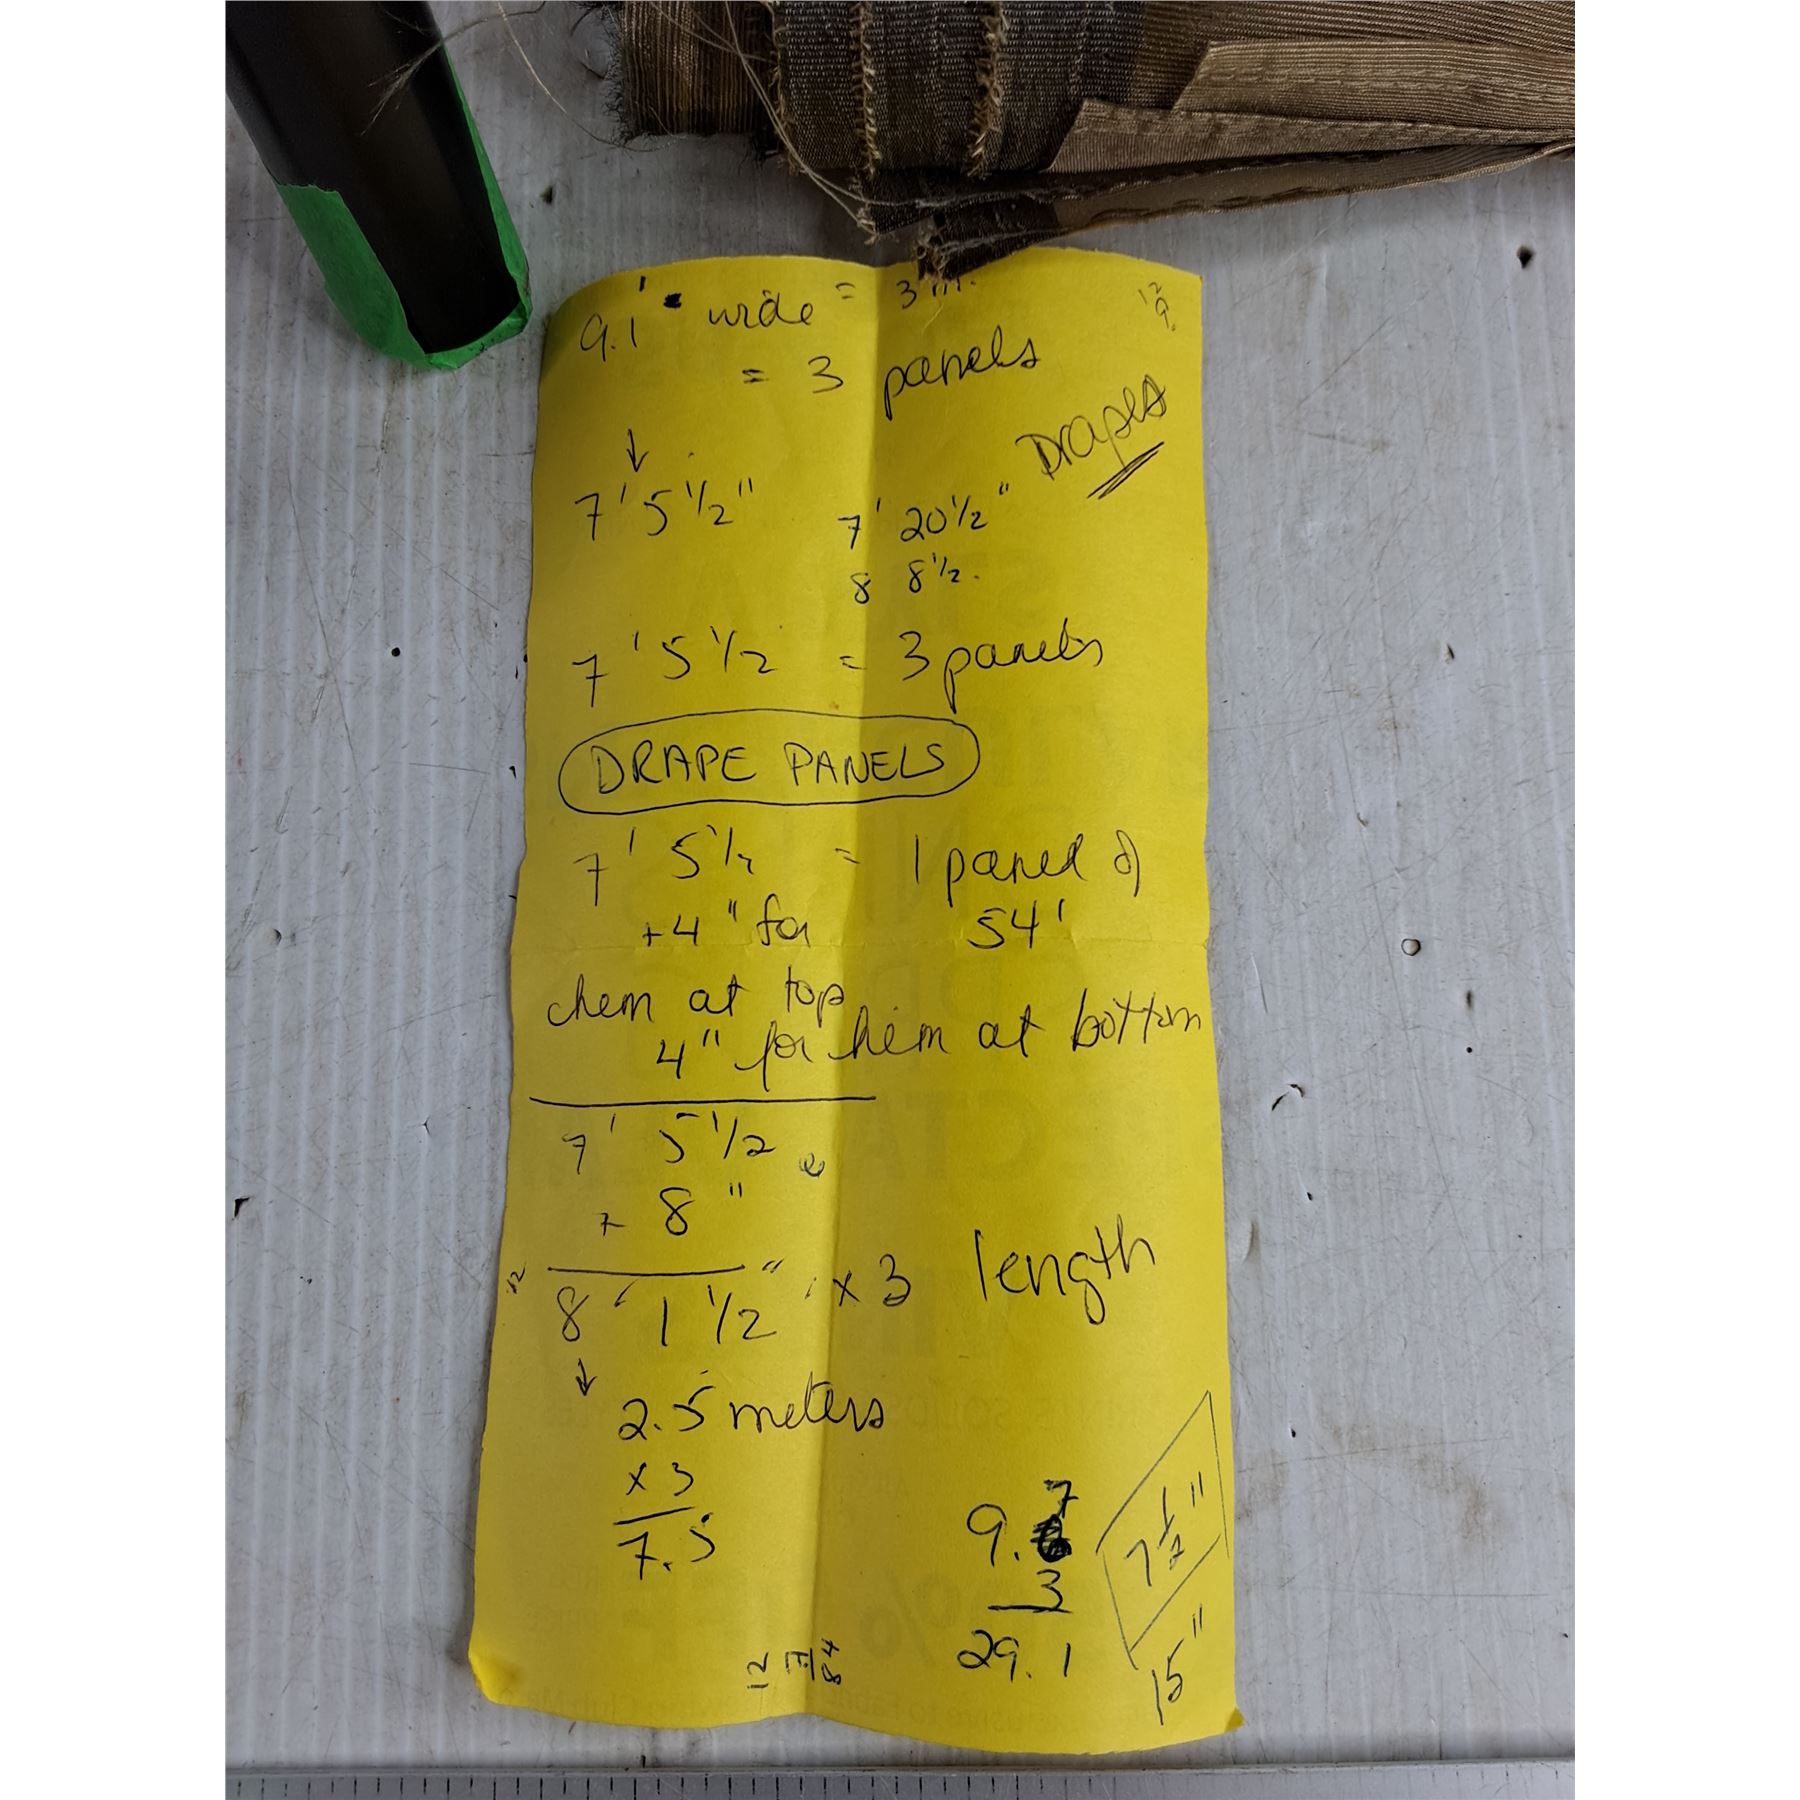 9.1' wide = 3 m.
= 3 panels
Drapes
↓
7' 5 1/2"
7' 20 1/2"
8 8 1/2.
7' 5 1/2 = 3 panels
DRAPE PANELS
7' 5 1/2 = 1 panel of
+4" for 54'
hem at top
4" for hem at bottom
7' 5 1/2
+ 8"
12
8' 1 1/2" x 3 length
↓
2.5 meters
x 3
7.5
9.7
3
29.1
7 1/2"
15"
12
7
84
12
9.